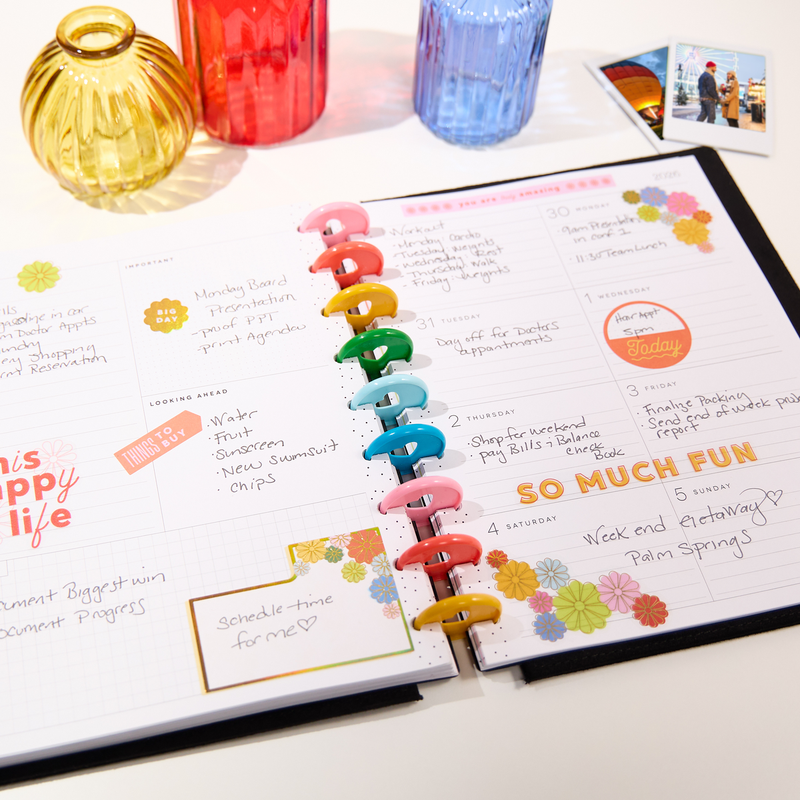 IMPORTANT
BIG
DAY
Monday Board
Presentation
·proof PPT
·print Agendas
gasoline in car
Doctor Appts
Shopping
Reservation
LOOKING AHEAD
THINGS TO
BUY
·Water
·Fruit
·Sunscreen
·New Swimsuit
·Chips
his
appy
life
ocument Biggest win
ocument Progress
Schedle time
for me♡
you are amazing
Workout
·Monday Cardio
·Tuesday Weights
·Wednesday Rest
·Thursday Walk
·Friday Weights
30 MONDAY
·9am Presentation
in conf. 2
·11:30 Team Lunch
31 TUESDAY
Day off for Doctors
appointments
1 WEDNESDAY
Hair Appt
5pm
Today
2 THURSDAY
·Shop for weekend
pay Bills & Balance
check
Book
3 FRIDAY
·Finalize Packing
·Send end of week
report
SO MUCH FUN
4 SATURDAY
5 SUNDAY
Week end Getaway♡
Palm Springs